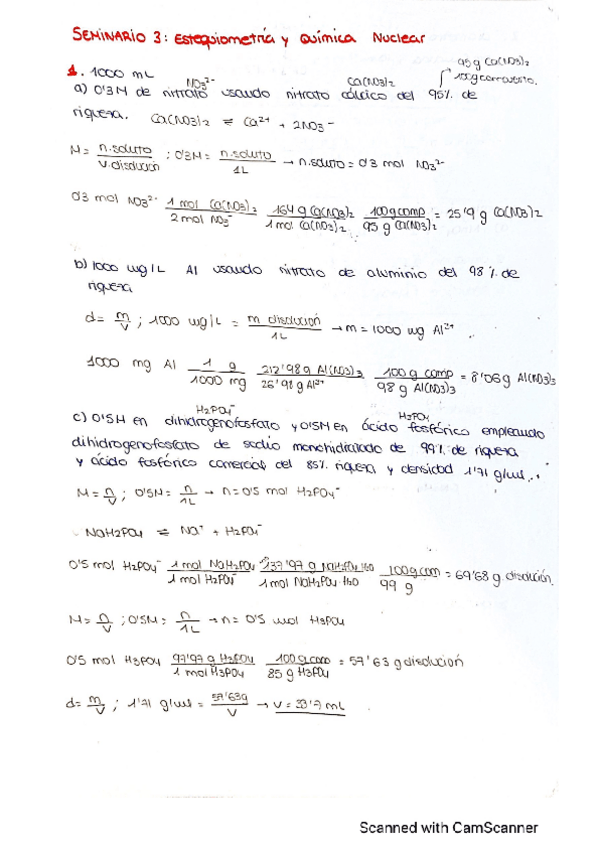 SEMINARIO 3: Estequiometría y Química Nuclear
95g Ca(NO3)2
1. 1000 mL
100g compuesto.
NO3²⁻ Ca(NO3)2
a) 0'3M de nitrato usando nitrato cálcico del 95% de
riqueza. Ca(NO3)2 ⇌ Ca²⁺ + 2NO3⁻
M = n.soluto / V.disolución ; 0'3M = n.soluto / 1L → n.soluto = 0'3 mol NO3²⁻
0'3 mol NO3²⁻ 1 mol Ca(NO3)2 / 2 mol NO3⁻ 164 g Ca(NO3)2 / 1 mol Ca(NO3)2 100g comp / 95 g Ca(NO3)2 = 25'9 g Ca(NO3)2
b) 1000 mg/L Al usando nitrato de aluminio del 98% de
riqueza
d = m/V ; 1000 mg/L = m disolución / 1L → m = 1000 mg Al²⁺
1000 mg Al 1 g / 1000 mg 212'98 g Al(NO3)3 / 26'98 g Al²⁺ 100 g comp / 98 g Al(NO3)3 = 8'06 g Al(NO3)3
H2PO4⁻ H3PO4
c) 0'5M en dihidrogenofosfato y 0'5M en ácido fosfórico empleando
dihidrogenofosfato de sodio monohidratado de 99% de riqueza
y ácido fosfórico comercial del 85% riqueza y densidad 1'71 g/mL.
M = n/V ; 0'5M = n/1L → n = 0'5 mol H2PO4⁻
NaH2PO4 ⇌ Na⁺ + H2PO4⁻
0'5 mol H2PO4⁻ 1 mol NaH2PO4 / 1 mol H2PO4⁻ 137'97 g NaH2PO4·H2O / 1 mol NaH2PO4·H2O 100g com / 99 g = 69'68 g disolución.
M = n/V ; 0'5M = n/1L → n = 0'5 mol H3PO4
0'5 mol H3PO4 97'97 g H3PO4 / 1 mol H3PO4 100g comp / 85 g H3PO4 = 57'63 g disolución
d = m/V ; 1'71 g/mL = 57'63g / V → V = 33'7 mL
Scanned with CamScanner